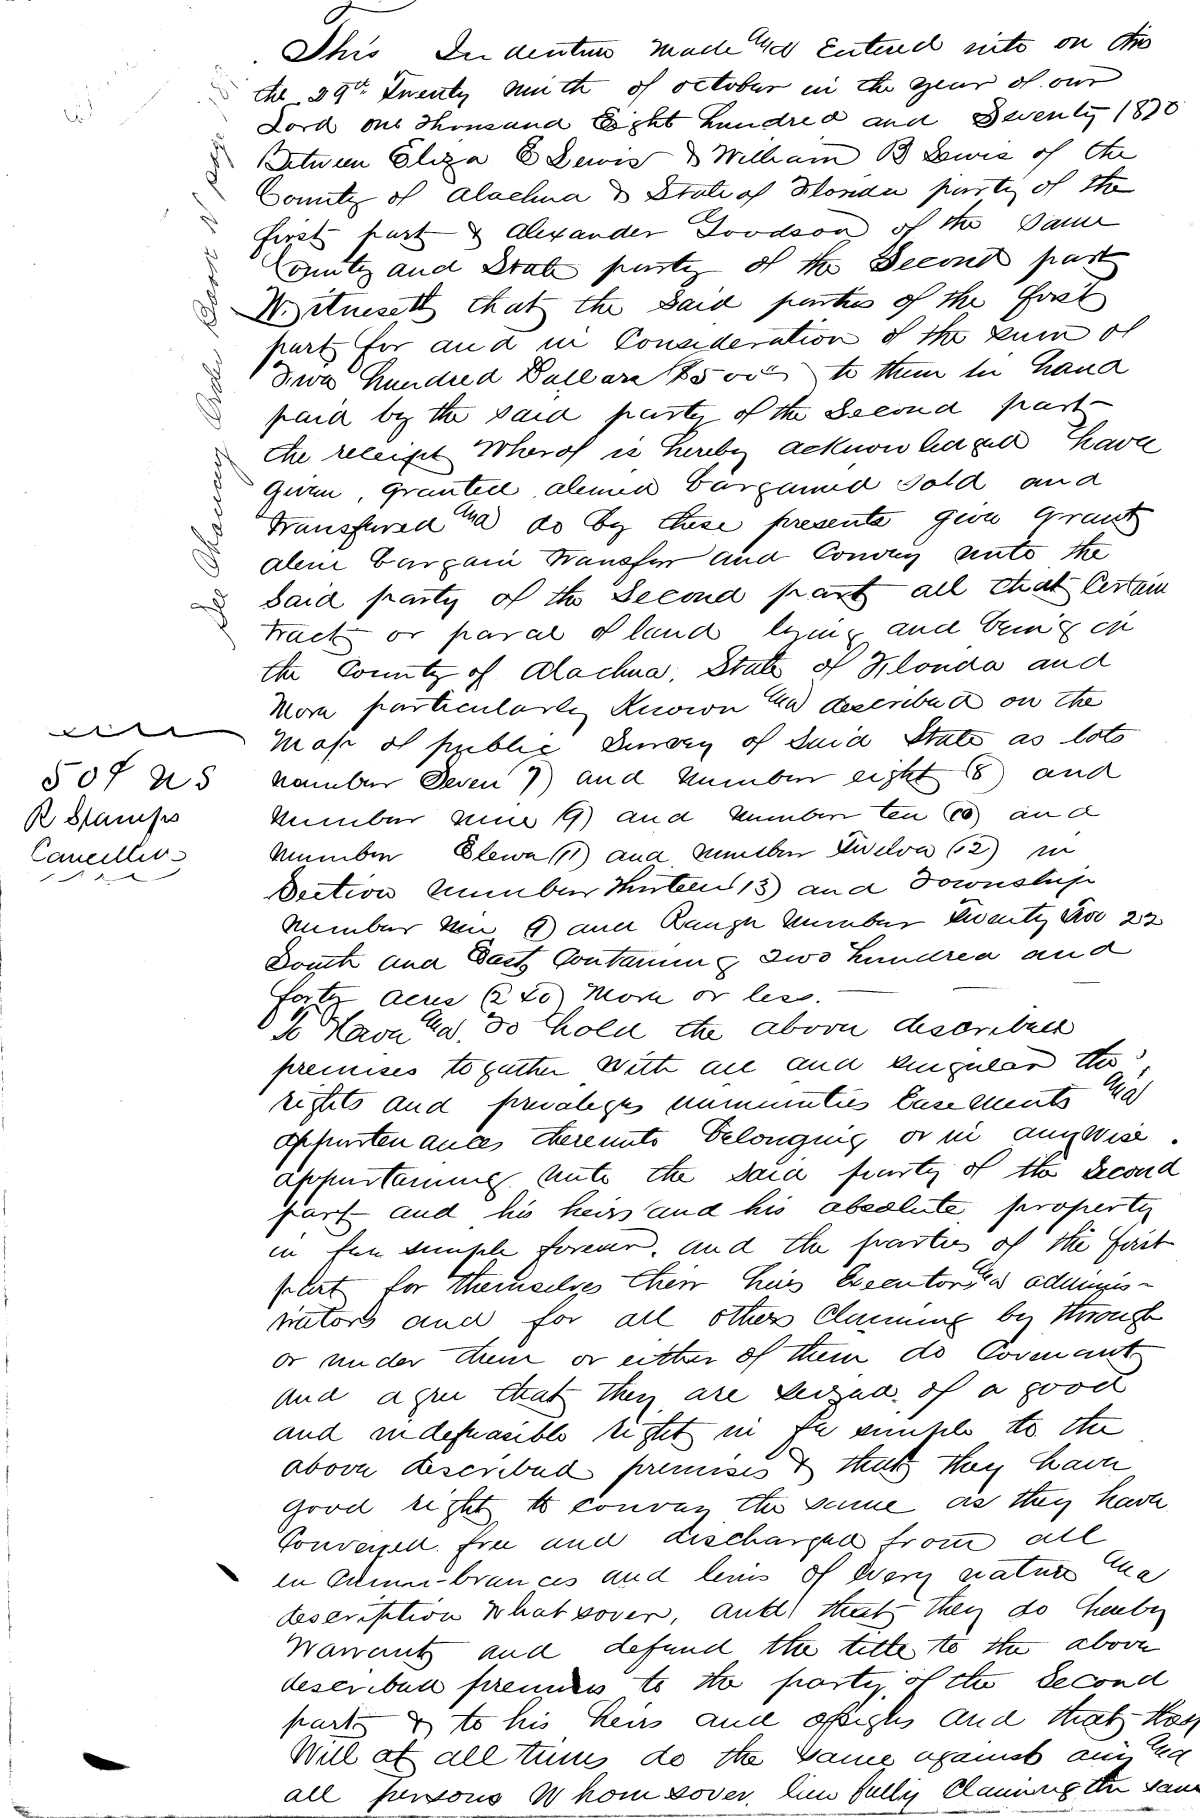 This Indenture Made and Entered into on this
the 29th Twenty ninth of october in the year of our
Lord one Thousand Eight hundred and Seventy 1870
Between Eliza E Lewis & William B Lewis of the
County of Alachua & State of Florida party of the
first part & Alexander Goodson of the Same
County and State party of the Second part
Witnesseth that the Said parties of the first
part for and in Consideration of the sum of
hundred Dollars to them in hand
paid by the said party of the Second part
the receipt Wherof is hereby acknowledged have
given, granted aliened bargained sold and
transfered and do by these presents give grant
alien bargain transfer and Convey unto the
Said party of the Second part all that Certain
tract or parcal of land lying and being in
the County of Alachua, State of Florida and
More particularly Known and described on the
Map of public Survey of Said State as lots
number Seven 7) and number eight (8) and
number nine (9) and number ten (10) and
number Eleven (11) and number Twelve (12) in
Section number Thirteen 13) and Township
number nine 9) and Range number Twenty Two 22
South and East Containing Two hundred and
forty acres (240) More or less.
To Have and To hold the above described
premises together with all and singular the
rights and privaleges immunities Easements and
appurtenances thereunto belonging or in anywise
appurtaining unto the said party of the Second
part and his heirs and his absolute property
in fee simple forever. and the parties of the first
part for themselves their heirs Executors and adminis-
trators and for all others Claiming by through
or under them or either of them do Covenant
and agree that they are seized of a good
and indefeasible right in fee simple to the
above described premises & that they have
good right to convey the same as they have
Conveyed free and discharged from all
encumbrances and liens of every nature and
description whatsover, and that they do hereby
Warrant and defend the title to the above
described premises to the party of the Second
part & to his heirs and assigns and that they
Will at all times do the same against any and
all persons Whomsover lawfully Claiming the same
50¢ US
R Stamps
Cancelled
See Chancery Order Book N page